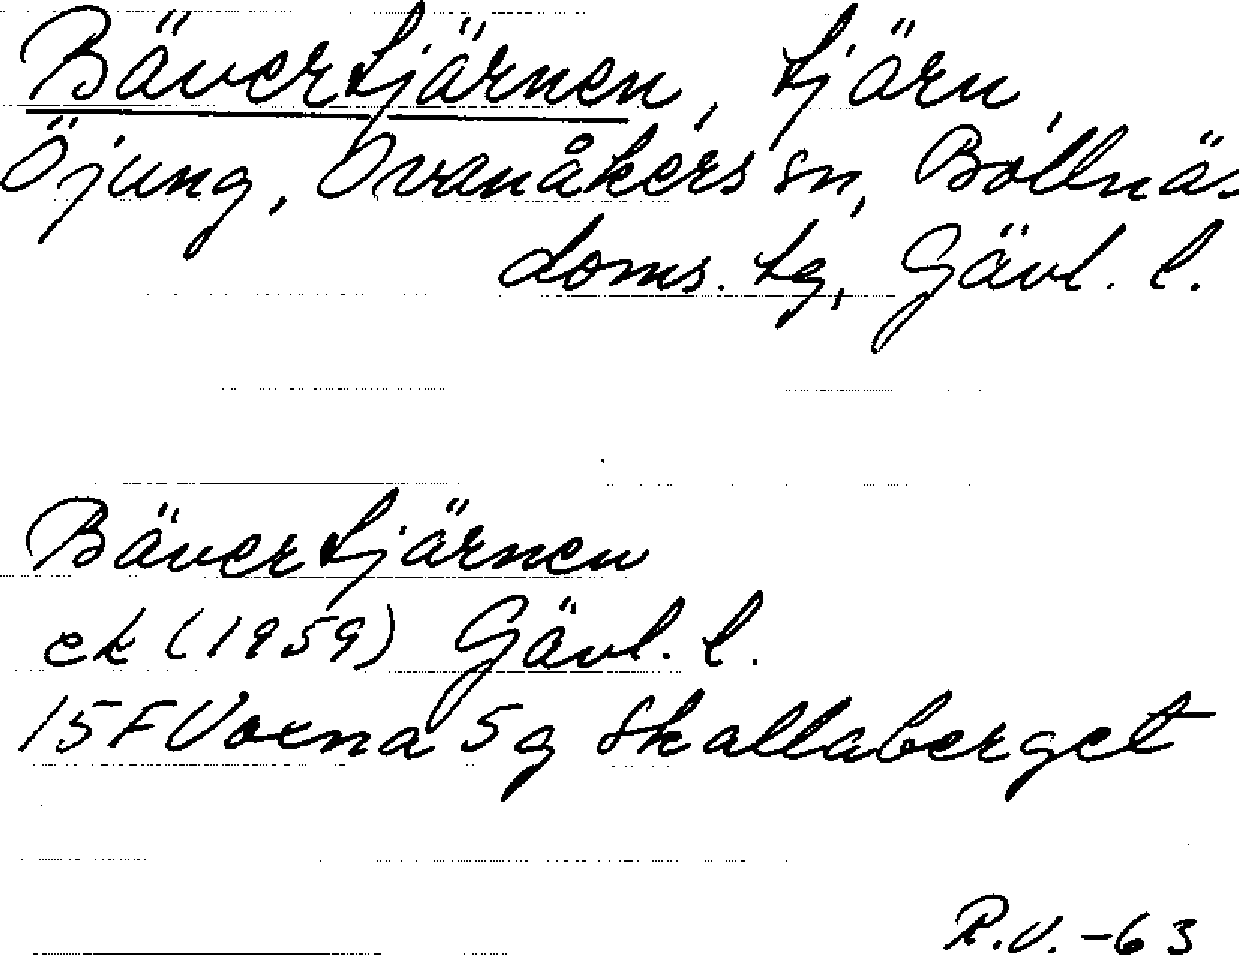 Bävertjärnen, tjärn,
Öjung, Ovanåkers sn, Bollnäs
doms. tg, Gävl. l.
Bävertjärnen
ek (1959) Gävl. l.
15F Voxna 5g Skallaberget
R.V. -63